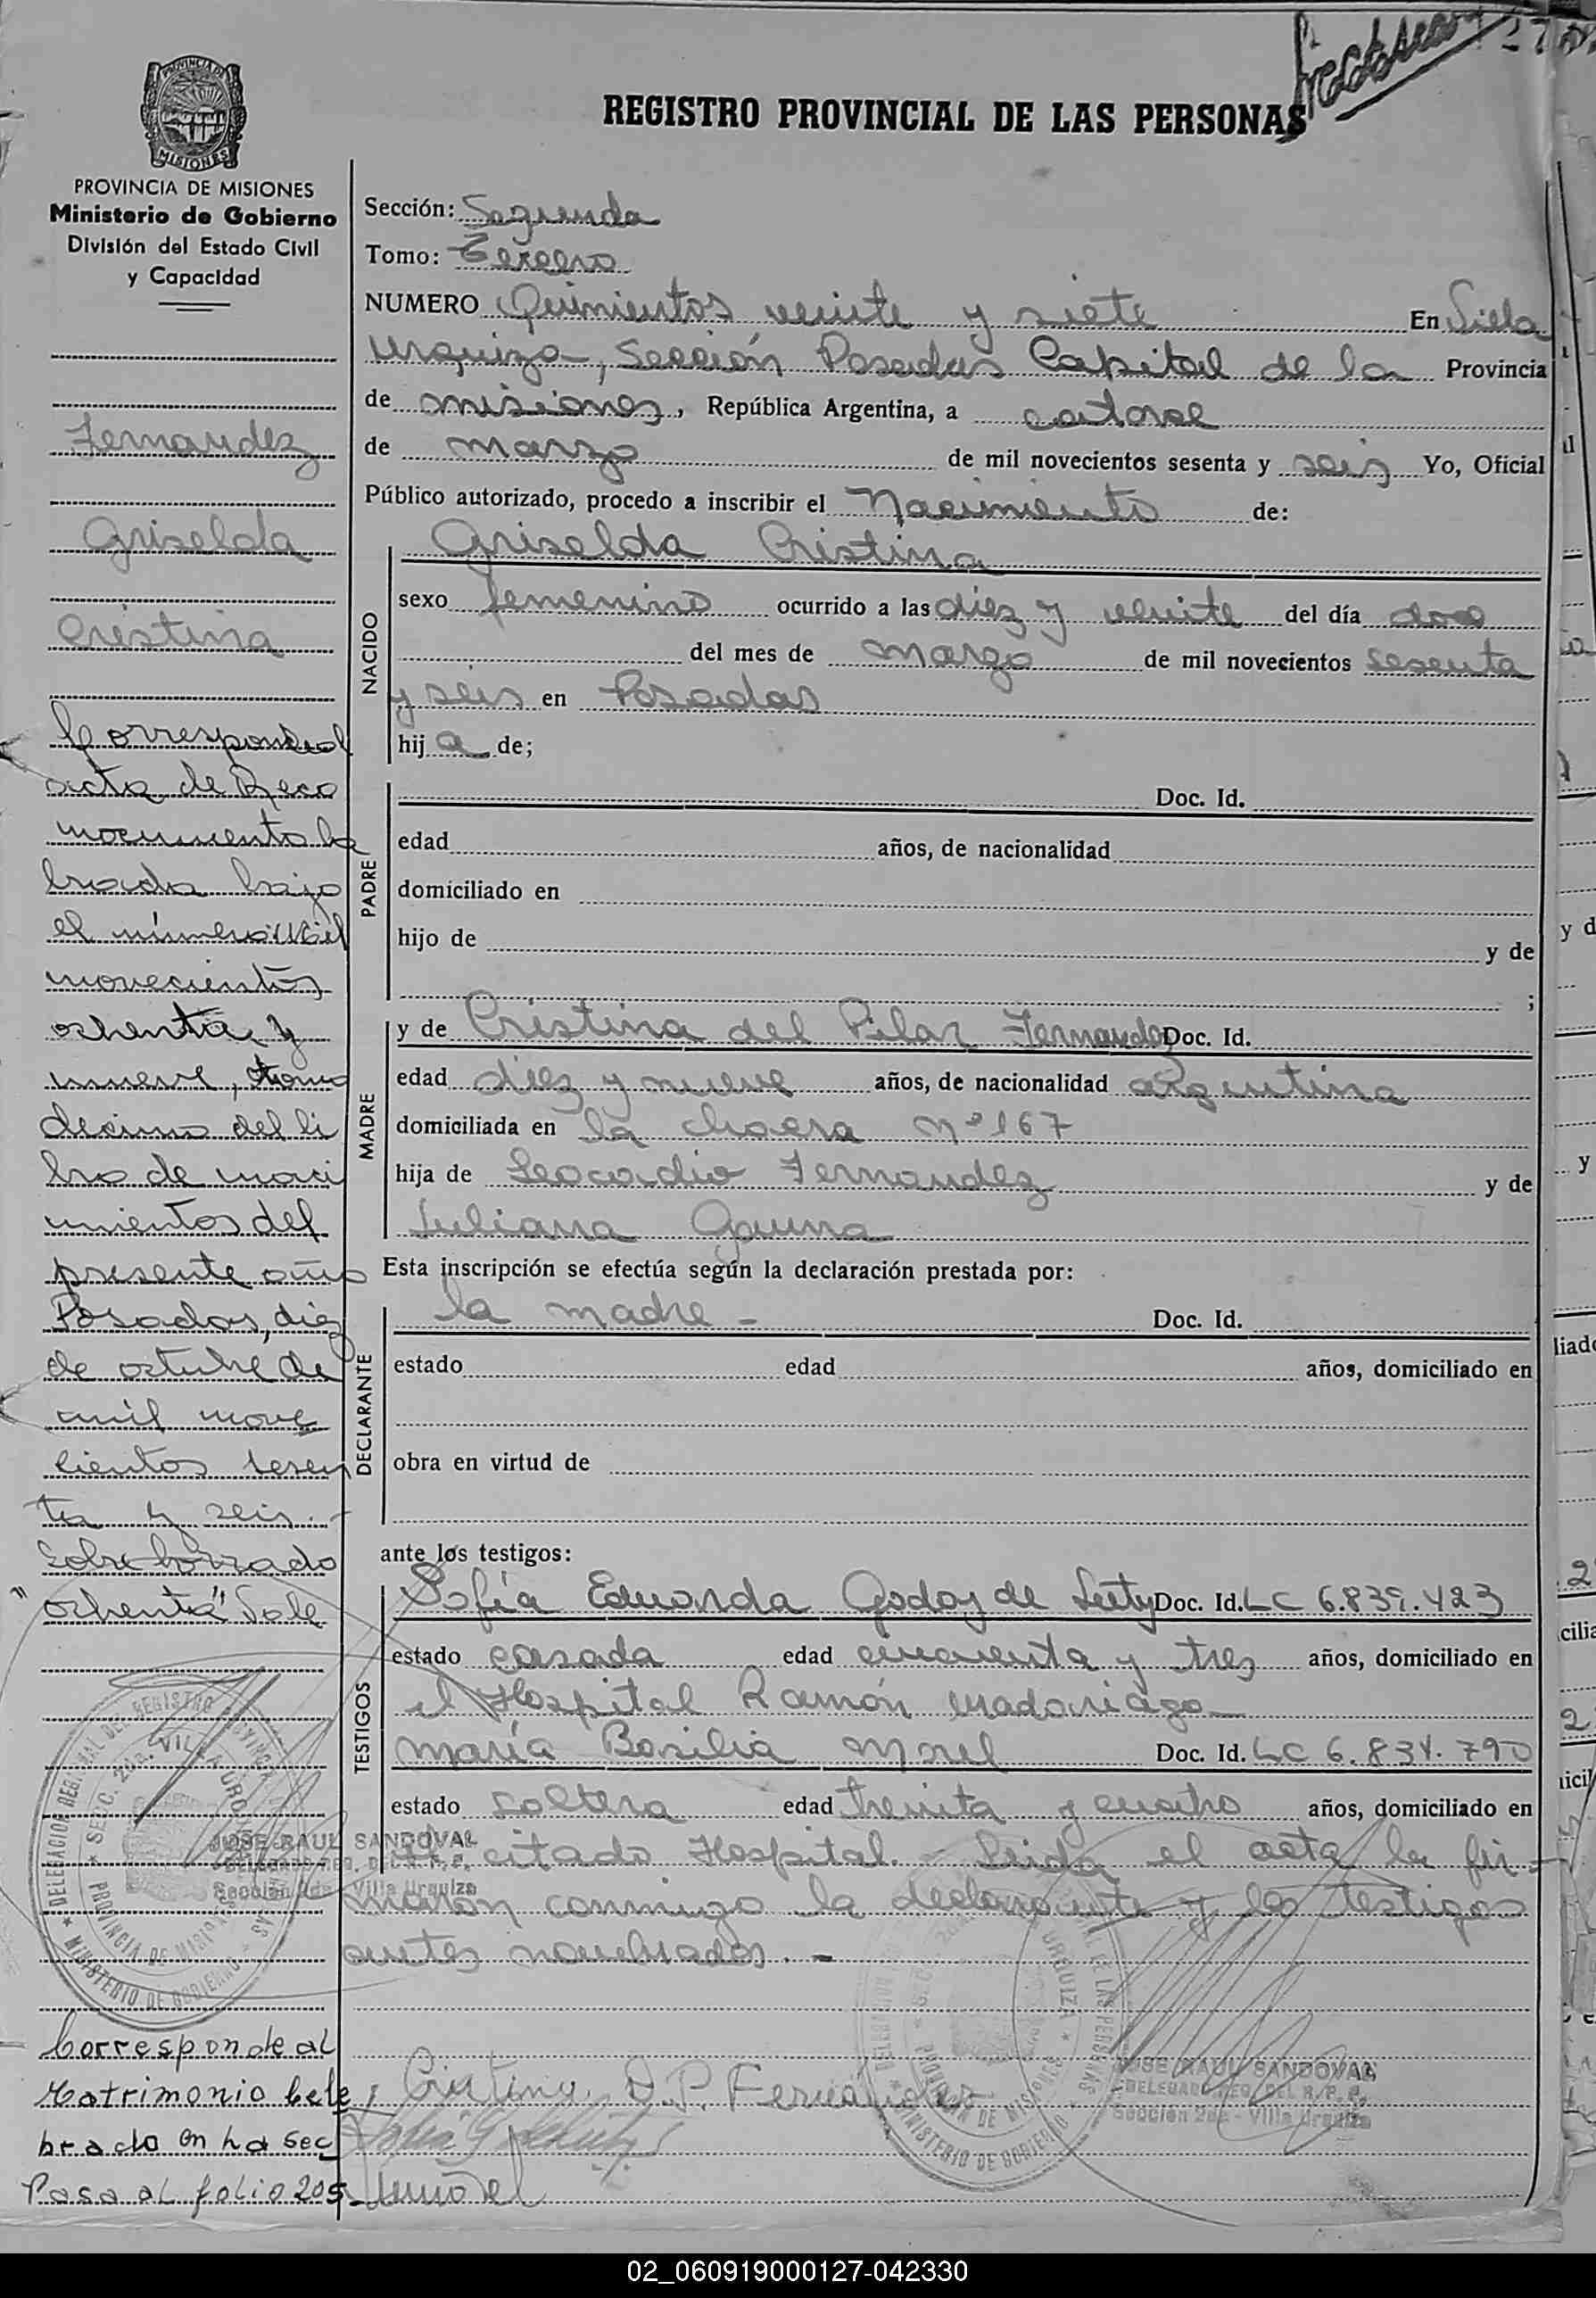 REGISTRO PROVINCIAL DE LAS PERSONAS
PROVINCIA DE
MISIONES
PROVINCIA DE MISIONES
Ministerio de Gobierno
División del Estado Civil
y Capacidad
Fernandez
Griselda
Cristina
Corresponde al
acta de Reco
nocimiento la
brada bajo
el número Mil
novecientos
ochenta y
nueve, tomo
decimo del li
bro de naci
mientos del
presente año
Posadas, diez
de octubre de
mil nove
cientos sesen
ta y seis.-
Sobre borrado
"ochenta" Vale
JOSE RAUL SANDOVAL
DELEGADO REG. DEL R. P. P.
Sección 2da - Villa Urquiza
Corresponde al
Matrimonio cele
brado en la Sec
Pasa al folio 205-
Sección: Segunda
Tomo: Tercero
NUMERO Quinientos veinte y siete En Villa
Urquiza, Sección Posadas Capital de la Provincia
de misiones, República Argentina, a catorce
de marzo de mil novecientos sesenta y seis Yo, Oficial
Público autorizado, procedo a inscribir el Nacimiento de:
NACIDO
Griselda Cristina
sexo femenino ocurrido a las diez y veinte del día doce
del mes de marzo de mil novecientos sesenta
y seis en Posadas
hija de;
PADRE
Doc. Id.
edad años, de nacionalidad
domiciliado en
hijo de y de
;
MADRE
y de Cristina del Pilar Fernandez Doc. Id.
edad diez y nueve años, de nacionalidad argentina
domiciliada en la chacra nº 167
hija de Leocadio Fernandez y de
Juliana Gauna
Esta inscripción se efectúa según la declaración prestada por:
DECLARANTE
la madre - Doc. Id.
estado edad años, domiciliado en
obra en virtud de
ante los testigos:
TESTIGOS
Sofía Eduarda Godoy de Doc. Id. LC 6.839.423
estado casada edad cincuenta y tres años, domiciliado en
el Hospital Ramón Madariaga
María Basilia Morel Doc. Id. LC 6.834.790
estado soltera edad treinta y cuatro años, domiciliado en
el citado Hospital.- Leida el acta la fir-
maron conmigo la declarante y los testigos
antes nombrados.-
Cristina D.P. Fernandez
JOSE RAUL SANDOVAL
DELEGADO REG. DEL R. P. P.
Sección 2da - Villa Urquiza
02_060919000127-042330